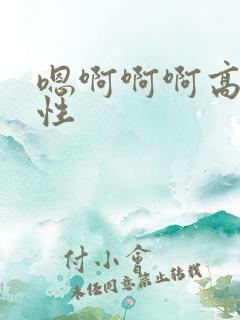 嗯啊啊啊高
性
付小会
未经同意禁止转载